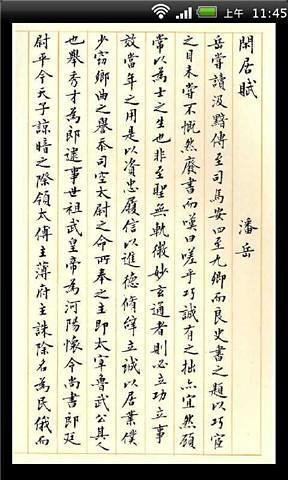 上午 11:45
閑居賦 潘岳
岳嘗讀汲黯傳至司馬安四至九卿而良史書之題以巧宦
之目未嘗不慨然廢書而嘆曰嗟乎巧誠有之拙亦宜然顧
常以為士之生也非至聖無軌微妙玄通者則必立功立事
效當年之用是以資忠履信以進德脩辭立誠以居業僕
少竊鄉曲之譽忝司空太尉之命所奉之主即太宰魯武公其人
也舉秀才為郎逮事世祖武皇帝為河陽懷令尚書郎廷
尉平今天子諒暗之際領太傅主薄府主誅除名為民俄而